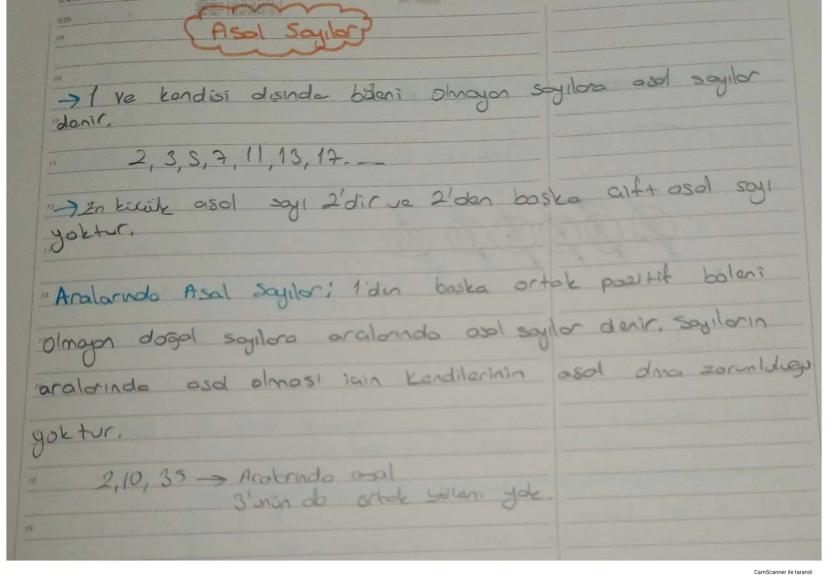 Asal Sayılar
→ 1 ve kendisi dışında böleni olmayan sayılara asal sayılar
denir.
2, 3, 5, 7, 11, 13, 17....
→ En küçük asal sayı 2'dir ve 2'den başka çift asal sayı
yoktur.
Aralarında Asal Sayılar; 1'den başka ortak pozitif böleni
olmayan doğal sayılara aralarında asal sayılar denir. Sayıların
aralarında asal olması için kendilerinin asal olma zorunluluğu
yoktur.
2, 10, 35 → Aralarında asal
3'ünün de ortak böleni yok.
CamScanner ile tarandı